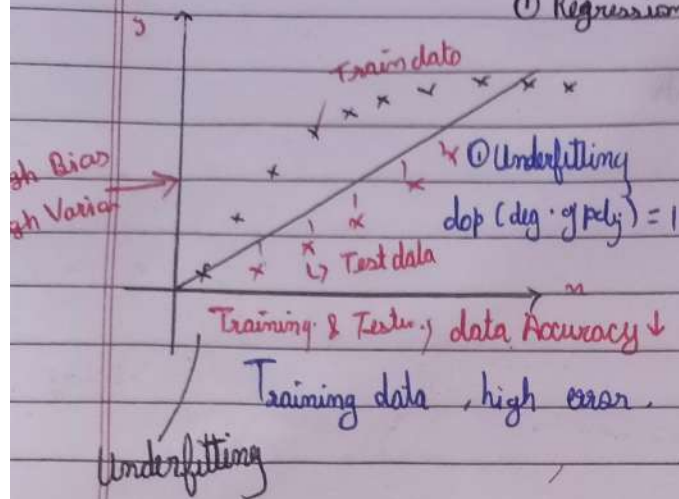 ① Regression
y
Train data
gh Bias
gh Varian
① Underfitting
dop (deg. of poly) = 1
Test data
Training & Testing data Accuracy ↓
Training data, high error.
Underfitting